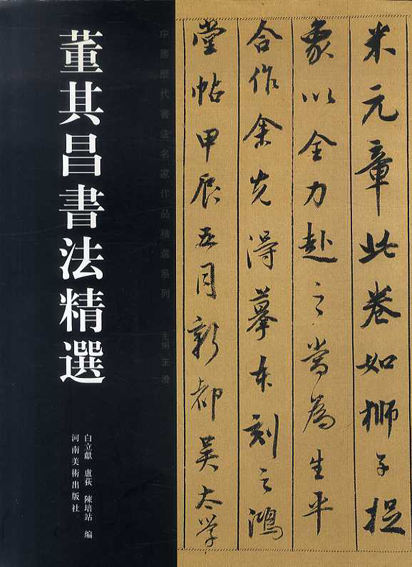 董其昌書法精選
白立獻 盧荻 陳培站 編
河南美術出版社
中國歷代書法名家作品精選系列 主編
米元章此卷如獅子捉
象以全力赴之當為生平
合作余先得摹本刻之鴻
堂帖甲辰五月新都吳太学